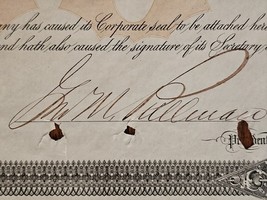 ny has caused its Corporate seal to be attached here
nd hath also caused the signature of its Secretary
Geo M. Pullman
President